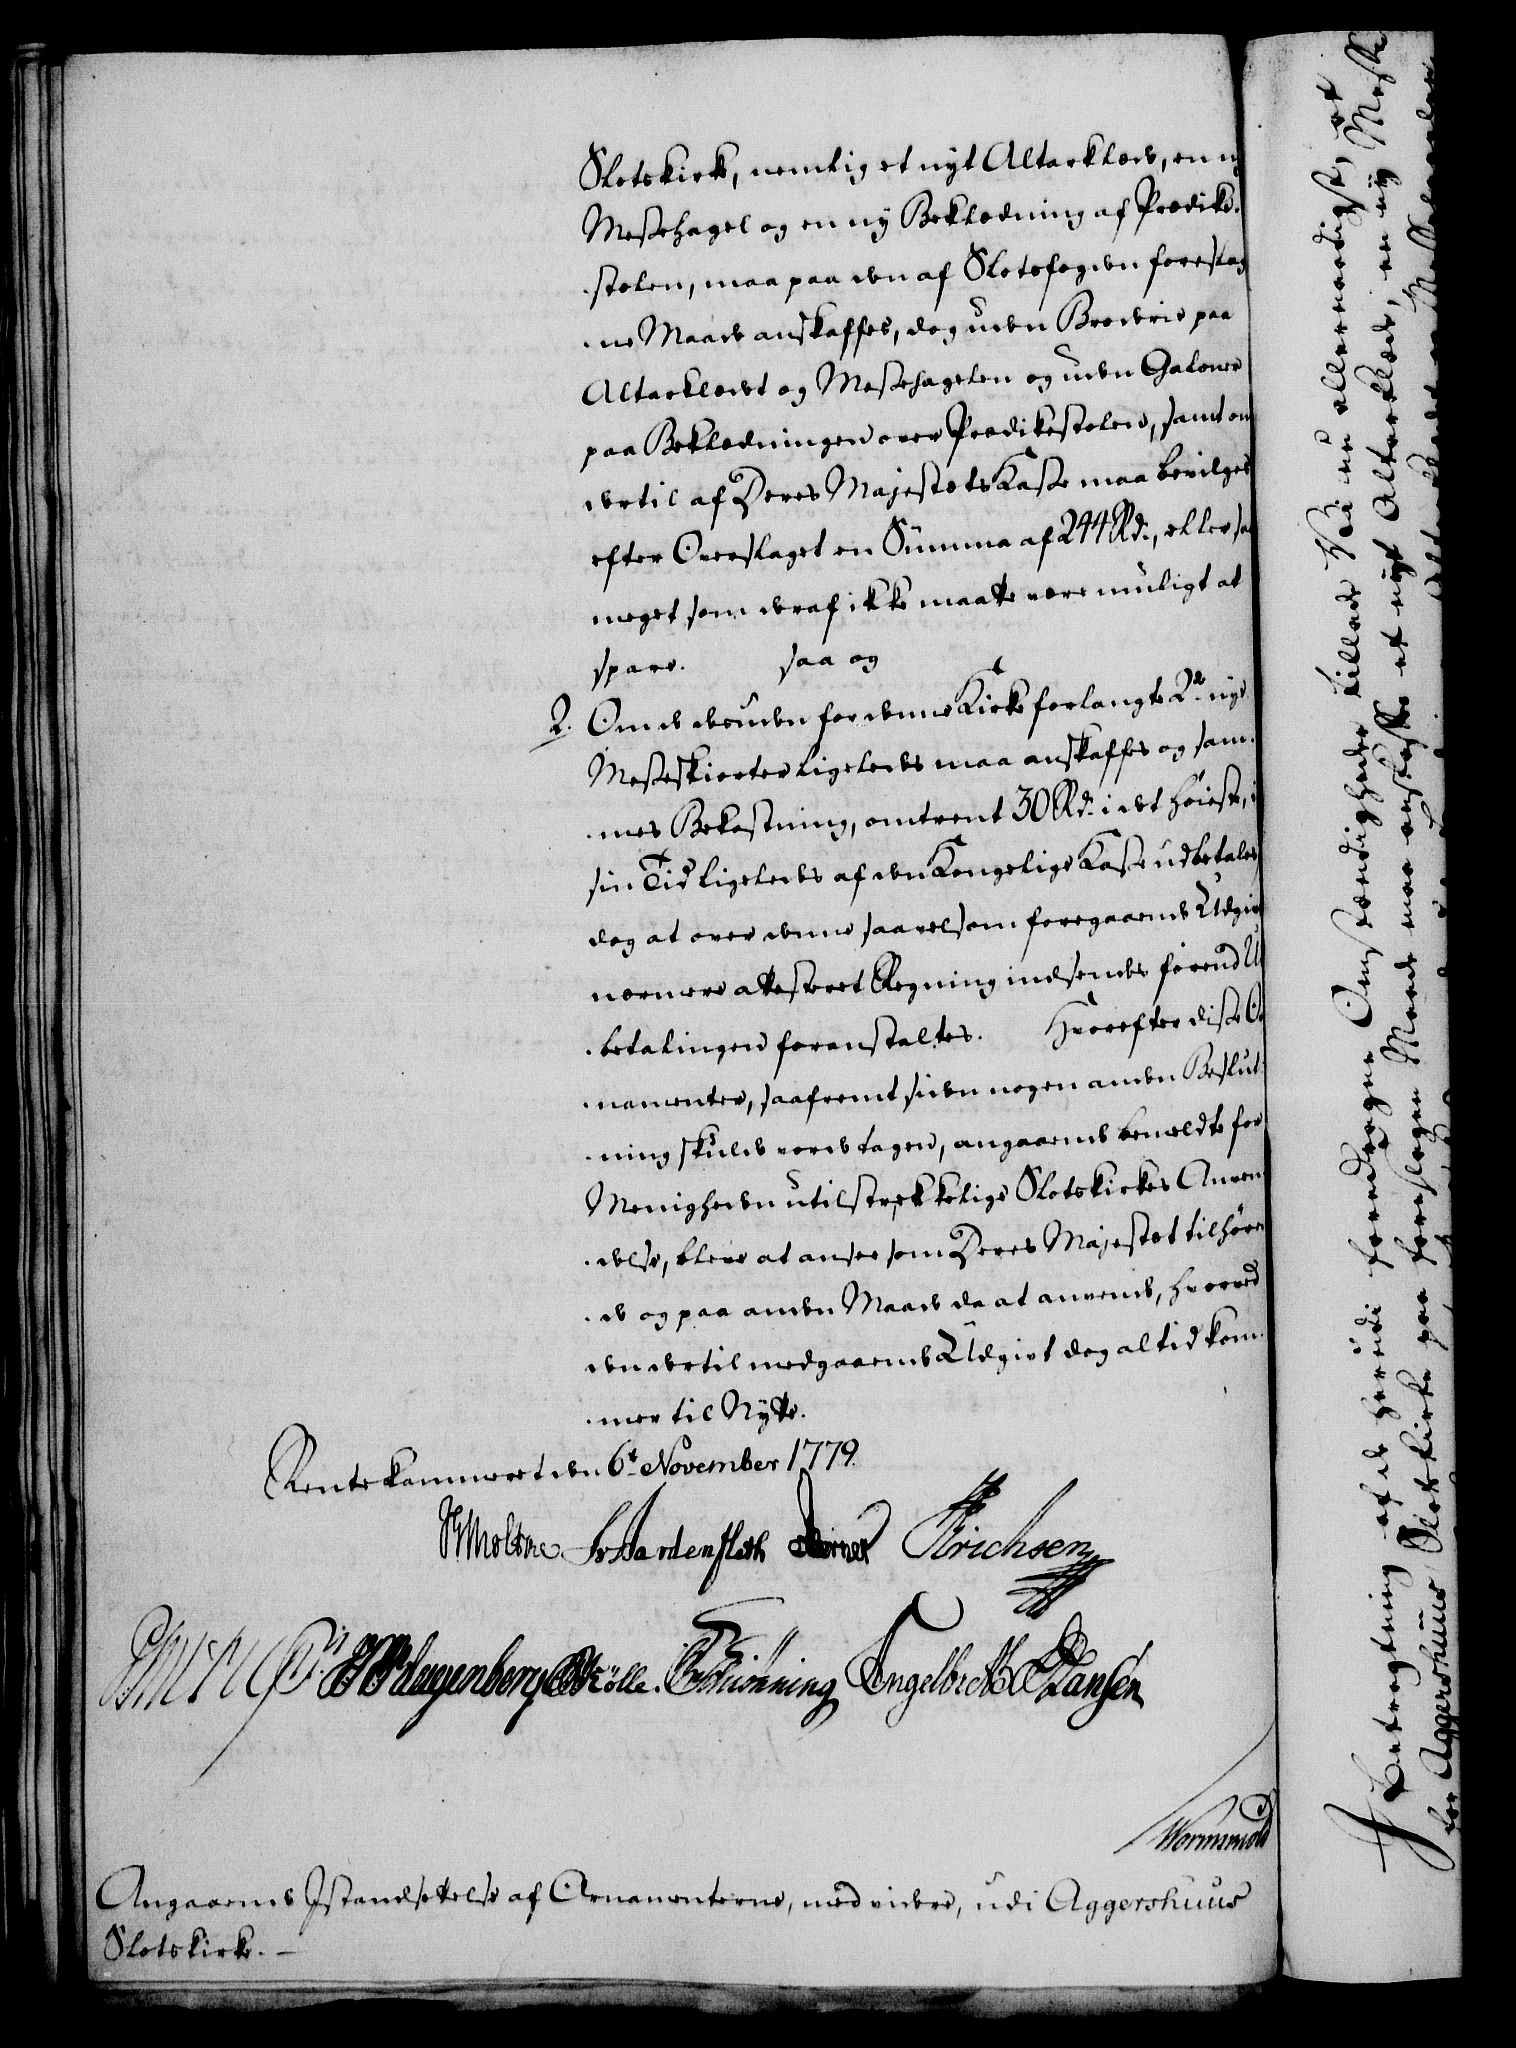 Slotskirke, nemlig et nyt Altarklæde, en ny
Messehagel og en ny Beklædning af Prædike-
stolen, maa paa den af Slotsfogden foreslag-
ne Maade anskaffes, dog uden Broderie paa
Altarklædet og Messehagelen og uden Galoner
paa Beklædningen over Prædikestolen, samt om
dertil af Deres Majestæts Kasse maa bevilges
efter Overslaget en Summa af 244 Rd., eller saa
meget som deraf ikke maatte være muligt at
spare. saa og
2. Om de desuden for denne Kirke forlangte 2de nye
Messeskiorter ligeledes maa anskaffes og sam-
mes Bekostning, omtrent 30 Rd. i det høieste, i
sin Tid ligeledes af den Kongelige Kasse udbetales
dog at over denne saavelsom foregaaende Udgivt
nærmere attesteret Regning indsendes førend Ud-
betalingen foranstaltes. Hvorefter disse Or-
namenter, saafremt siden nogen anden Beslut-
ning skulde vorde tagen, angaaende bemeldte for
Menigheden utilstrekkelige Slotskirkes Anven-
delse, bleve at ansee som Deres Majestæt tilhøren-
de og paa anden Maade da at anvende, hvorved
den dertil medgaaende Udgivt dog altid kom-
mer til Nytte.
Rentekammeret den 6te November 1779.
Moltke. Hardenfleth Erichsen
Müller. Schiønning Engelbreth Hansen
Wormsmold
Angaaende Istandsettelse af Ornamenterne, med videre, udi Aggershuus
Slotskirke. –
I Betragtning af de herudi foredragne Omstændigheder tillade Vi allernaadigst, at
for Aggershuus Slotskirke paa foreslagen Maade maa anskaffes et nyt Alterklæde, en ny Messe